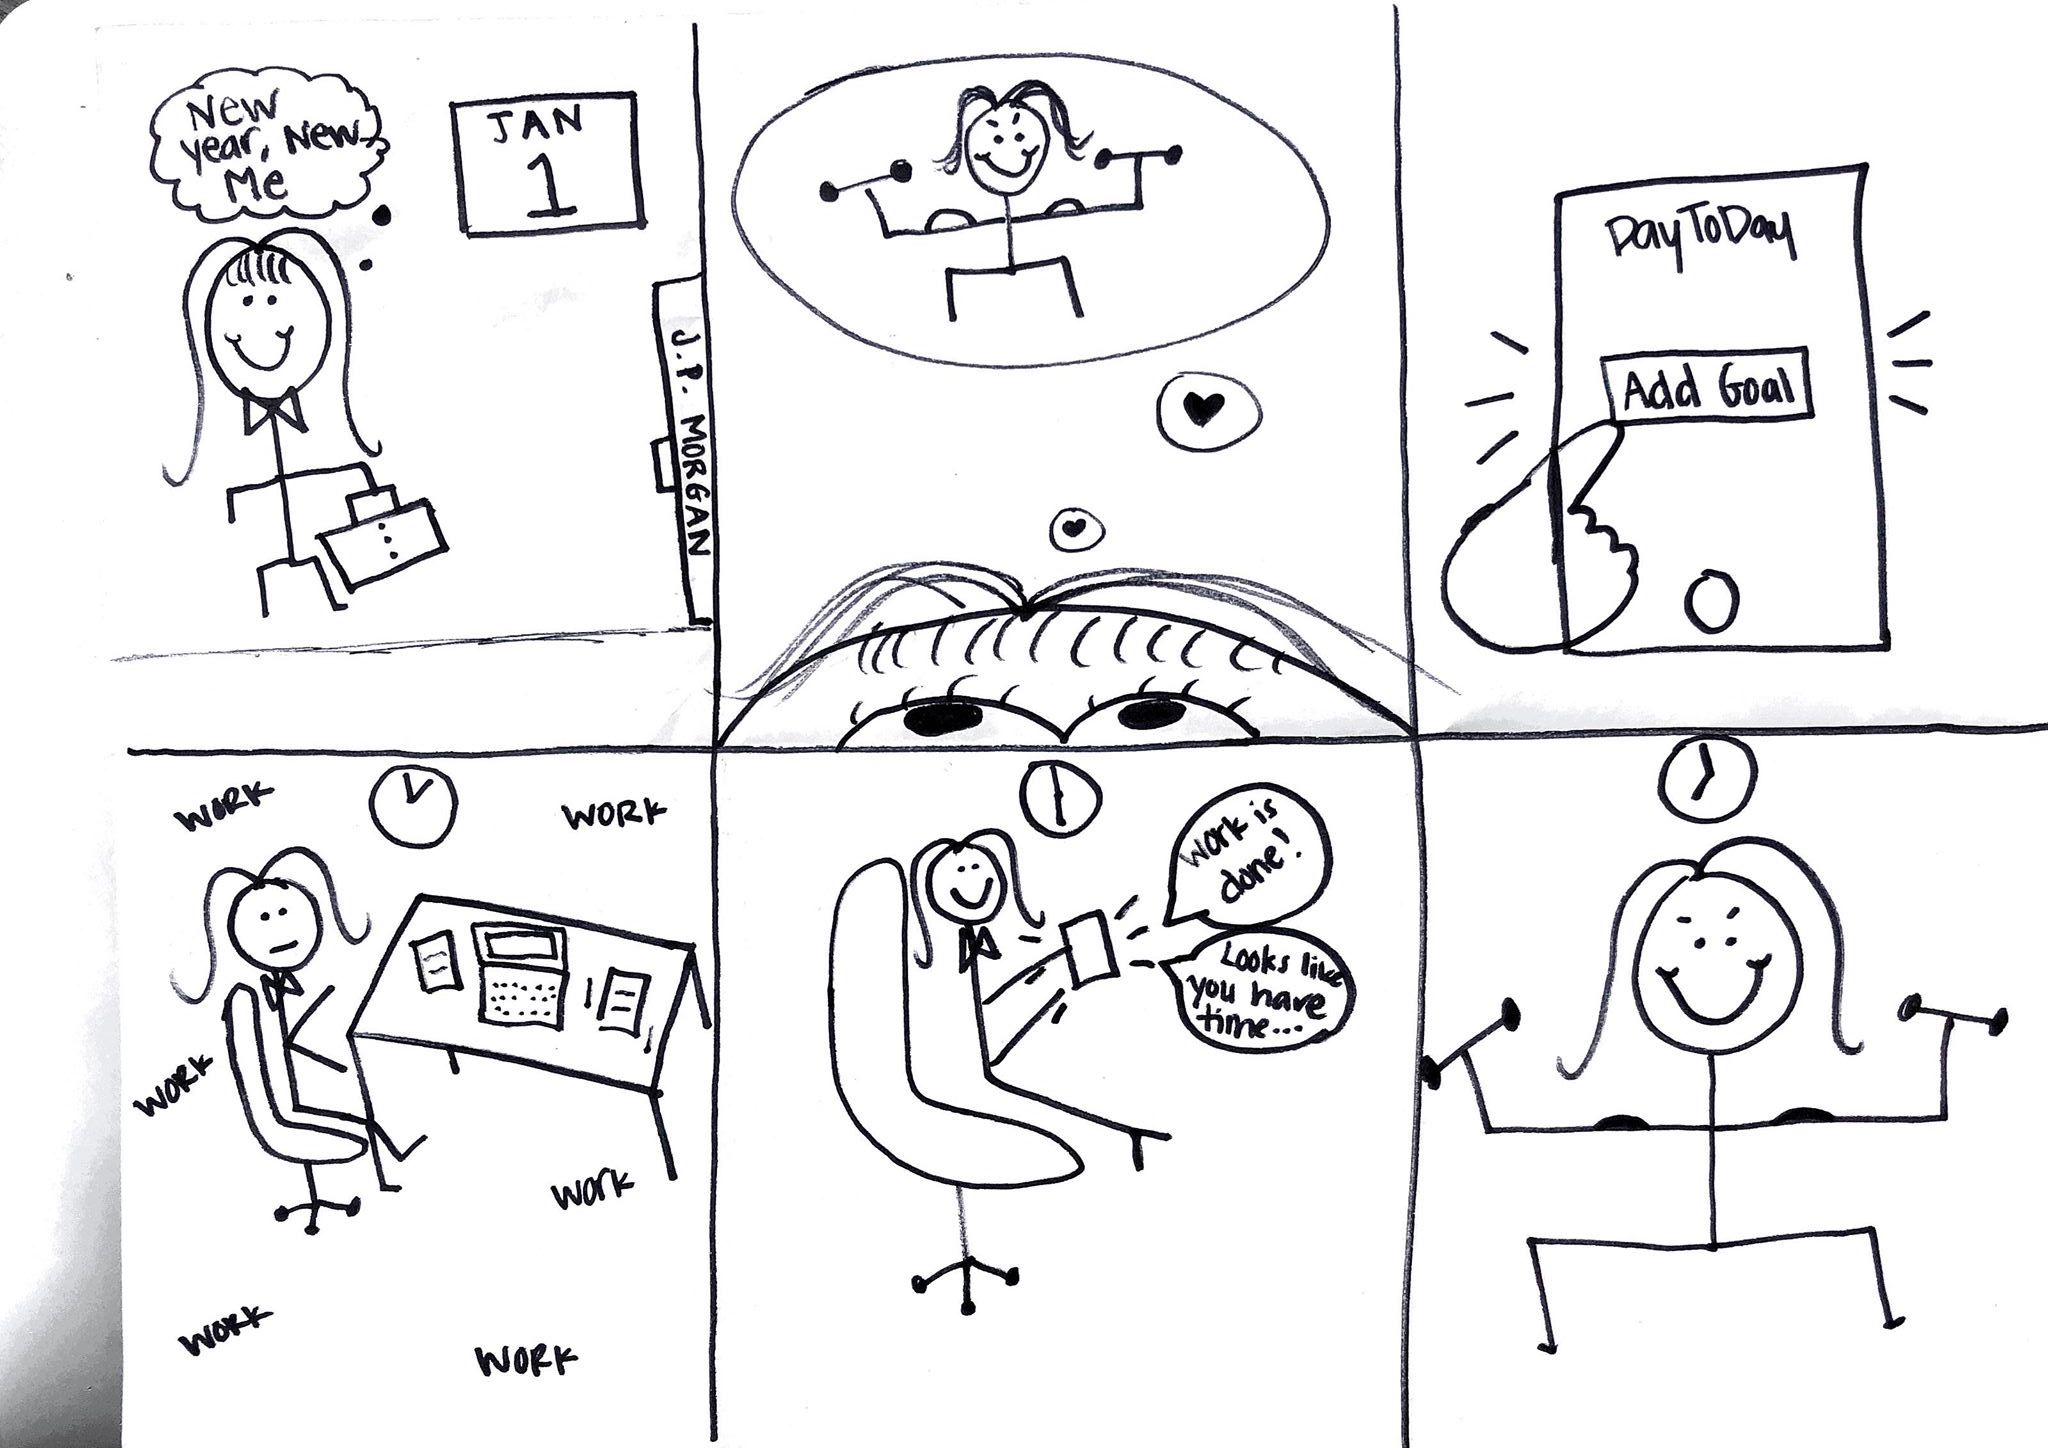 New
year, New
Me
JAN
1
J.P. MORGAN
DayToDay
Add Goal
WORK
WORK
WORK
WORK
WORK
WORK
Work is
done!
Looks like
you have
time...